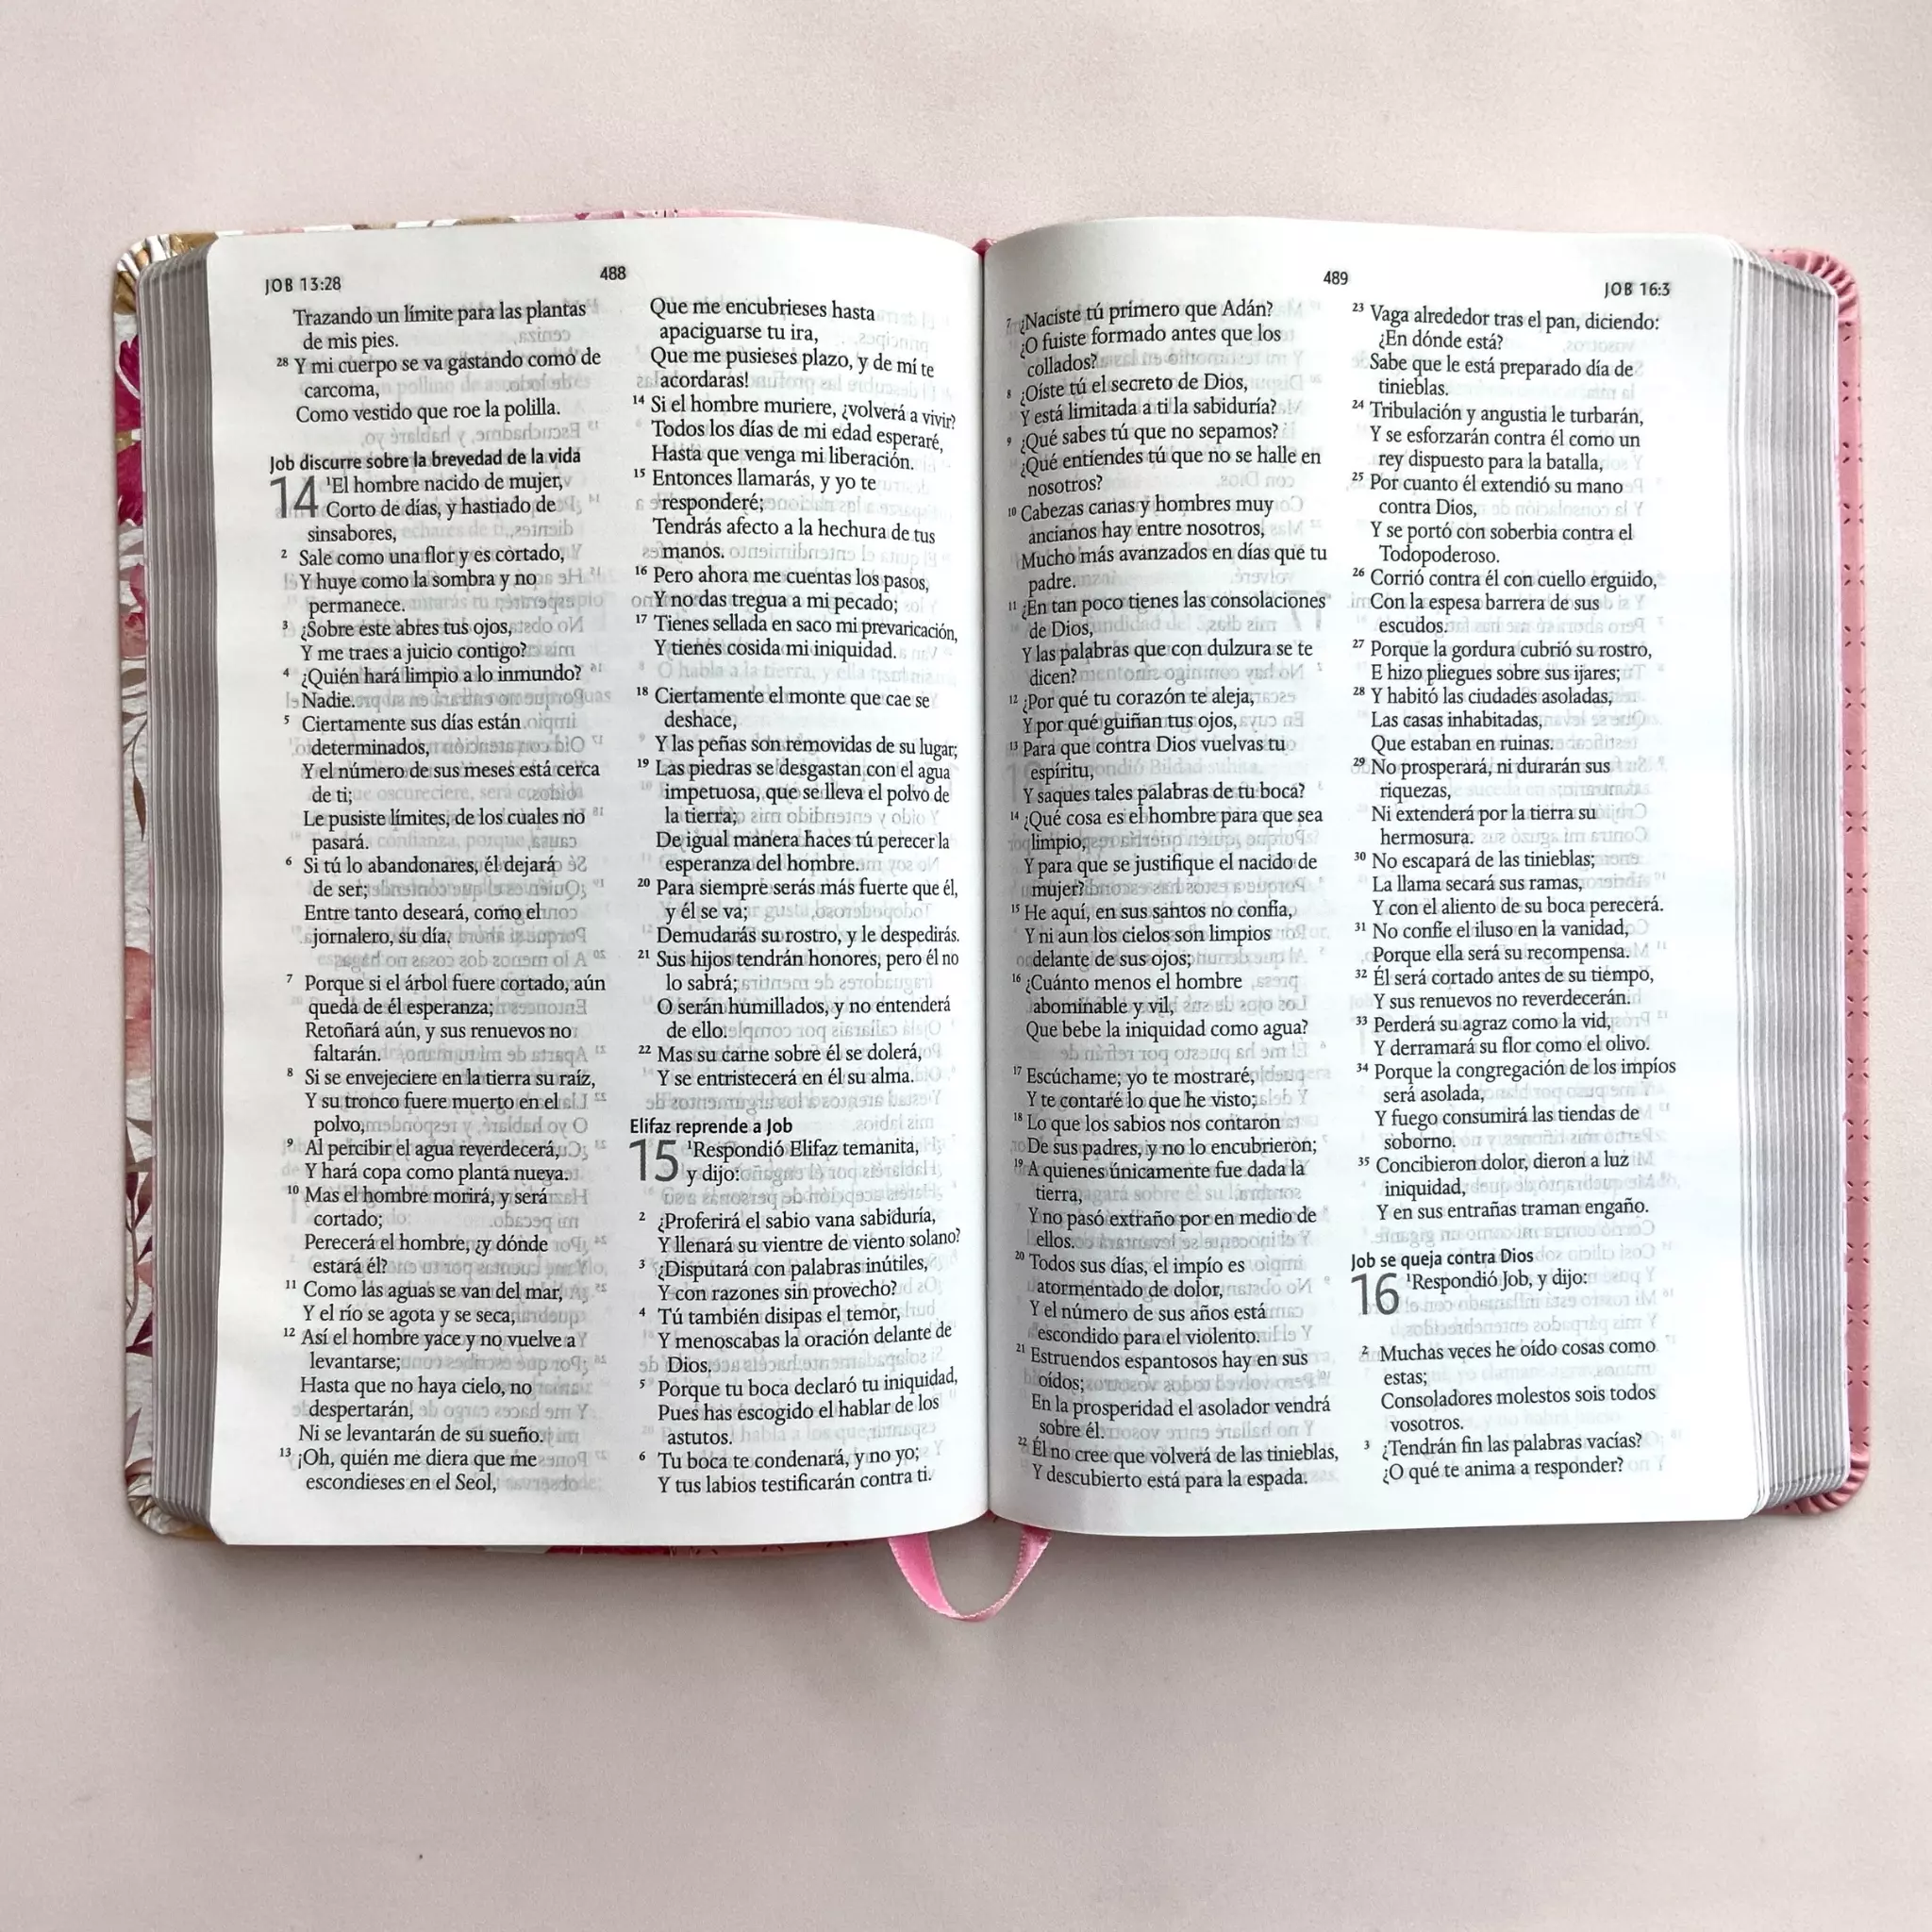 JOB 13:28
488
Trazando un límite para las plantas
de mis pies.
28 Y mi cuerpo se va gastando como de
carcoma,
Como vestido que roe la polilla.
Job discurre sobre la brevedad de la vida
14 1El hombre nacido de mujer,
Corto de días, y hastiado de
sinsabores,
2 Sale como una flor y es cortado,
Y huye como la sombra y no
permanece.
3 ¿Sobre este abres tus ojos,
Y me traes a juicio contigo?
4 ¿Quién hará limpio a lo inmundo?
Nadie.
5 Ciertamente sus días están
determinados,
Y el número de sus meses está cerca
de ti;
Le pusiste límites, de los cuales no
pasará.
6 Si tú lo abandonares, él dejará
de ser;
Entre tanto deseará, como el
jornalero, su día.
7 Porque si el árbol fuere cortado, aún
queda de él esperanza;
Retoñará aún, y sus renuevos no
faltarán.
8 Si se envejeciere en la tierra su raíz,
Y su tronco fuere muerto en el
polvo,
9 Al percibir el agua reverdecerá,
Y hará copa como planta nueva.
10 Mas el hombre morirá, y será
cortado;
Perecerá el hombre, ¿y dónde
estará él?
11 Como las aguas se van del mar,
Y el río se agota y se seca,
12 Así el hombre yace y no vuelve a
levantarse;
Hasta que no haya cielo, no
despertarán,
Ni se levantarán de su sueño.
13 ¡Oh, quién me diera que me
escondieses en el Seol,
Que me encubrieses hasta
apaciguarse tu ira,
Que me pusieses plazo, y de mí te
acordaras!
14 Si el hombre muriere, ¿volverá a vivir?
Todos los días de mi edad esperaré,
Hasta que venga mi liberación.
15 Entonces llamarás, y yo te
responderé;
Tendrás afecto a la hechura de tus
manos.
16 Pero ahora me cuentas los pasos,
Y no das tregua a mi pecado;
17 Tienes sellada en saco mi prevaricación,
Y tienes cosida mi iniquidad.
18 Ciertamente el monte que cae se
deshace,
Y las peñas son removidas de su lugar;
19 Las piedras se desgastan con el agua
impetuosa, que se lleva el polvo de
la tierra;
De igual manera haces tú perecer la
esperanza del hombre.
20 Para siempre serás más fuerte que él,
y él se va;
Demudarás su rostro, y le despedirás.
21 Sus hijos tendrán honores, pero él no
lo sabrá;
O serán humillados, y no entenderá
de ello.
22 Mas su carne sobre él se dolerá,
Y se entristecerá en él su alma.
Elifaz reprende a Job
15 1Respondió Elifaz temanita,
y dijo:
2 ¿Proferirá el sabio vana sabiduría,
Y llenará su vientre de viento solano?
3 ¿Disputará con palabras inútiles,
Y con razones sin provecho?
4 Tú también disipas el temor,
Y menoscabas la oración delante de
Dios.
5 Porque tu boca declaró tu iniquidad,
Pues has escogido el hablar de los
astutos.
6 Tu boca te condenará, y no yo;
Y tus labios testificarán contra ti.
489
JOB 16:3
7 ¿Naciste tú primero que Adán?
¿O fuiste formado antes que los
collados?
8 ¿Oíste tú el secreto de Dios,
Y está limitada a ti la sabiduría?
9 ¿Qué sabes tú que no sepamos?
¿Qué entiendes tú que no se halle en
nosotros?
10 Cabezas canas y hombres muy
ancianos hay entre nosotros,
Mucho más avanzados en días que tu
padre.
11 ¿En tan poco tienes las consolaciones
de Dios,
Y las palabras que con dulzura se te
dicen?
12 ¿Por qué tu corazón te aleja,
Y por qué guiñan tus ojos,
13 Para que contra Dios vuelvas tu
espíritu,
Y saques tales palabras de tu boca?
14 ¿Qué cosa es el hombre para que sea
limpio,
Y para que se justifique el nacido de
mujer?
15 He aquí, en sus santos no confía,
Y ni aun los cielos son limpios
delante de sus ojos;
16 ¿Cuánto menos el hombre
abominable y vil,
Que bebe la iniquidad como agua?
17 Escúchame; yo te mostraré,
Y te contaré lo que he visto;
18 Lo que los sabios nos contaron
De sus padres, y no lo encubrieron;
19 A quienes únicamente fue dada la
tierra,
Y no pasó extraño por en medio de
ellos.
20 Todos sus días, el impío es
atormentado de dolor,
Y el número de sus años está
escondido para el violento.
21 Estruendos espantosos hay en sus
oídos;
En la prosperidad el asolador vendrá
sobre él.
22 Él no cree que volverá de las tinieblas,
Y descubierto está para la espada.
23 Vaga alrededor tras el pan, diciendo:
¿En dónde está?
Sabe que le está preparado día de
tinieblas.
24 Tribulación y angustia le turbarán,
Y se esforzarán contra él como un
rey dispuesto para la batalla,
25 Por cuanto él extendió su mano
contra Dios,
Y se portó con soberbia contra el
Todopoderoso.
26 Corrió contra él con cuello erguido,
Con la espesa barrera de sus
escudos.
27 Porque la gordura cubrió su rostro,
E hizo pliegues sobre sus ijares;
28 Y habitó las ciudades asoladas,
Las casas inhabitadas,
Que estaban en ruinas.
29 No prosperará, ni durarán sus
riquezas,
Ni extenderá por la tierra su
hermosura.
30 No escapará de las tinieblas;
La llama secará sus ramas,
Y con el aliento de su boca perecerá.
31 No confíe el iluso en la vanidad,
Porque ella será su recompensa.
32 Él será cortado antes de su tiempo,
Y sus renuevos no reverdecerán.
33 Perderá su agraz como la vid,
Y derramará su flor como el olivo.
34 Porque la congregación de los impíos
será asolada,
Y fuego consumirá las tiendas de
soborno.
35 Concibieron dolor, dieron a luz
iniquidad,
Y en sus entrañas traman engaño.
Job se queja contra Dios
16 1Respondió Job, y dijo:
2 Muchas veces he oído cosas como
estas;
Consoladores molestos sois todos
vosotros.
3 ¿Tendrán fin las palabras vacías?
¿O qué te anima a responder?